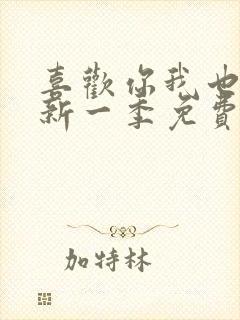 喜歡你我也
新一季免費
加特林